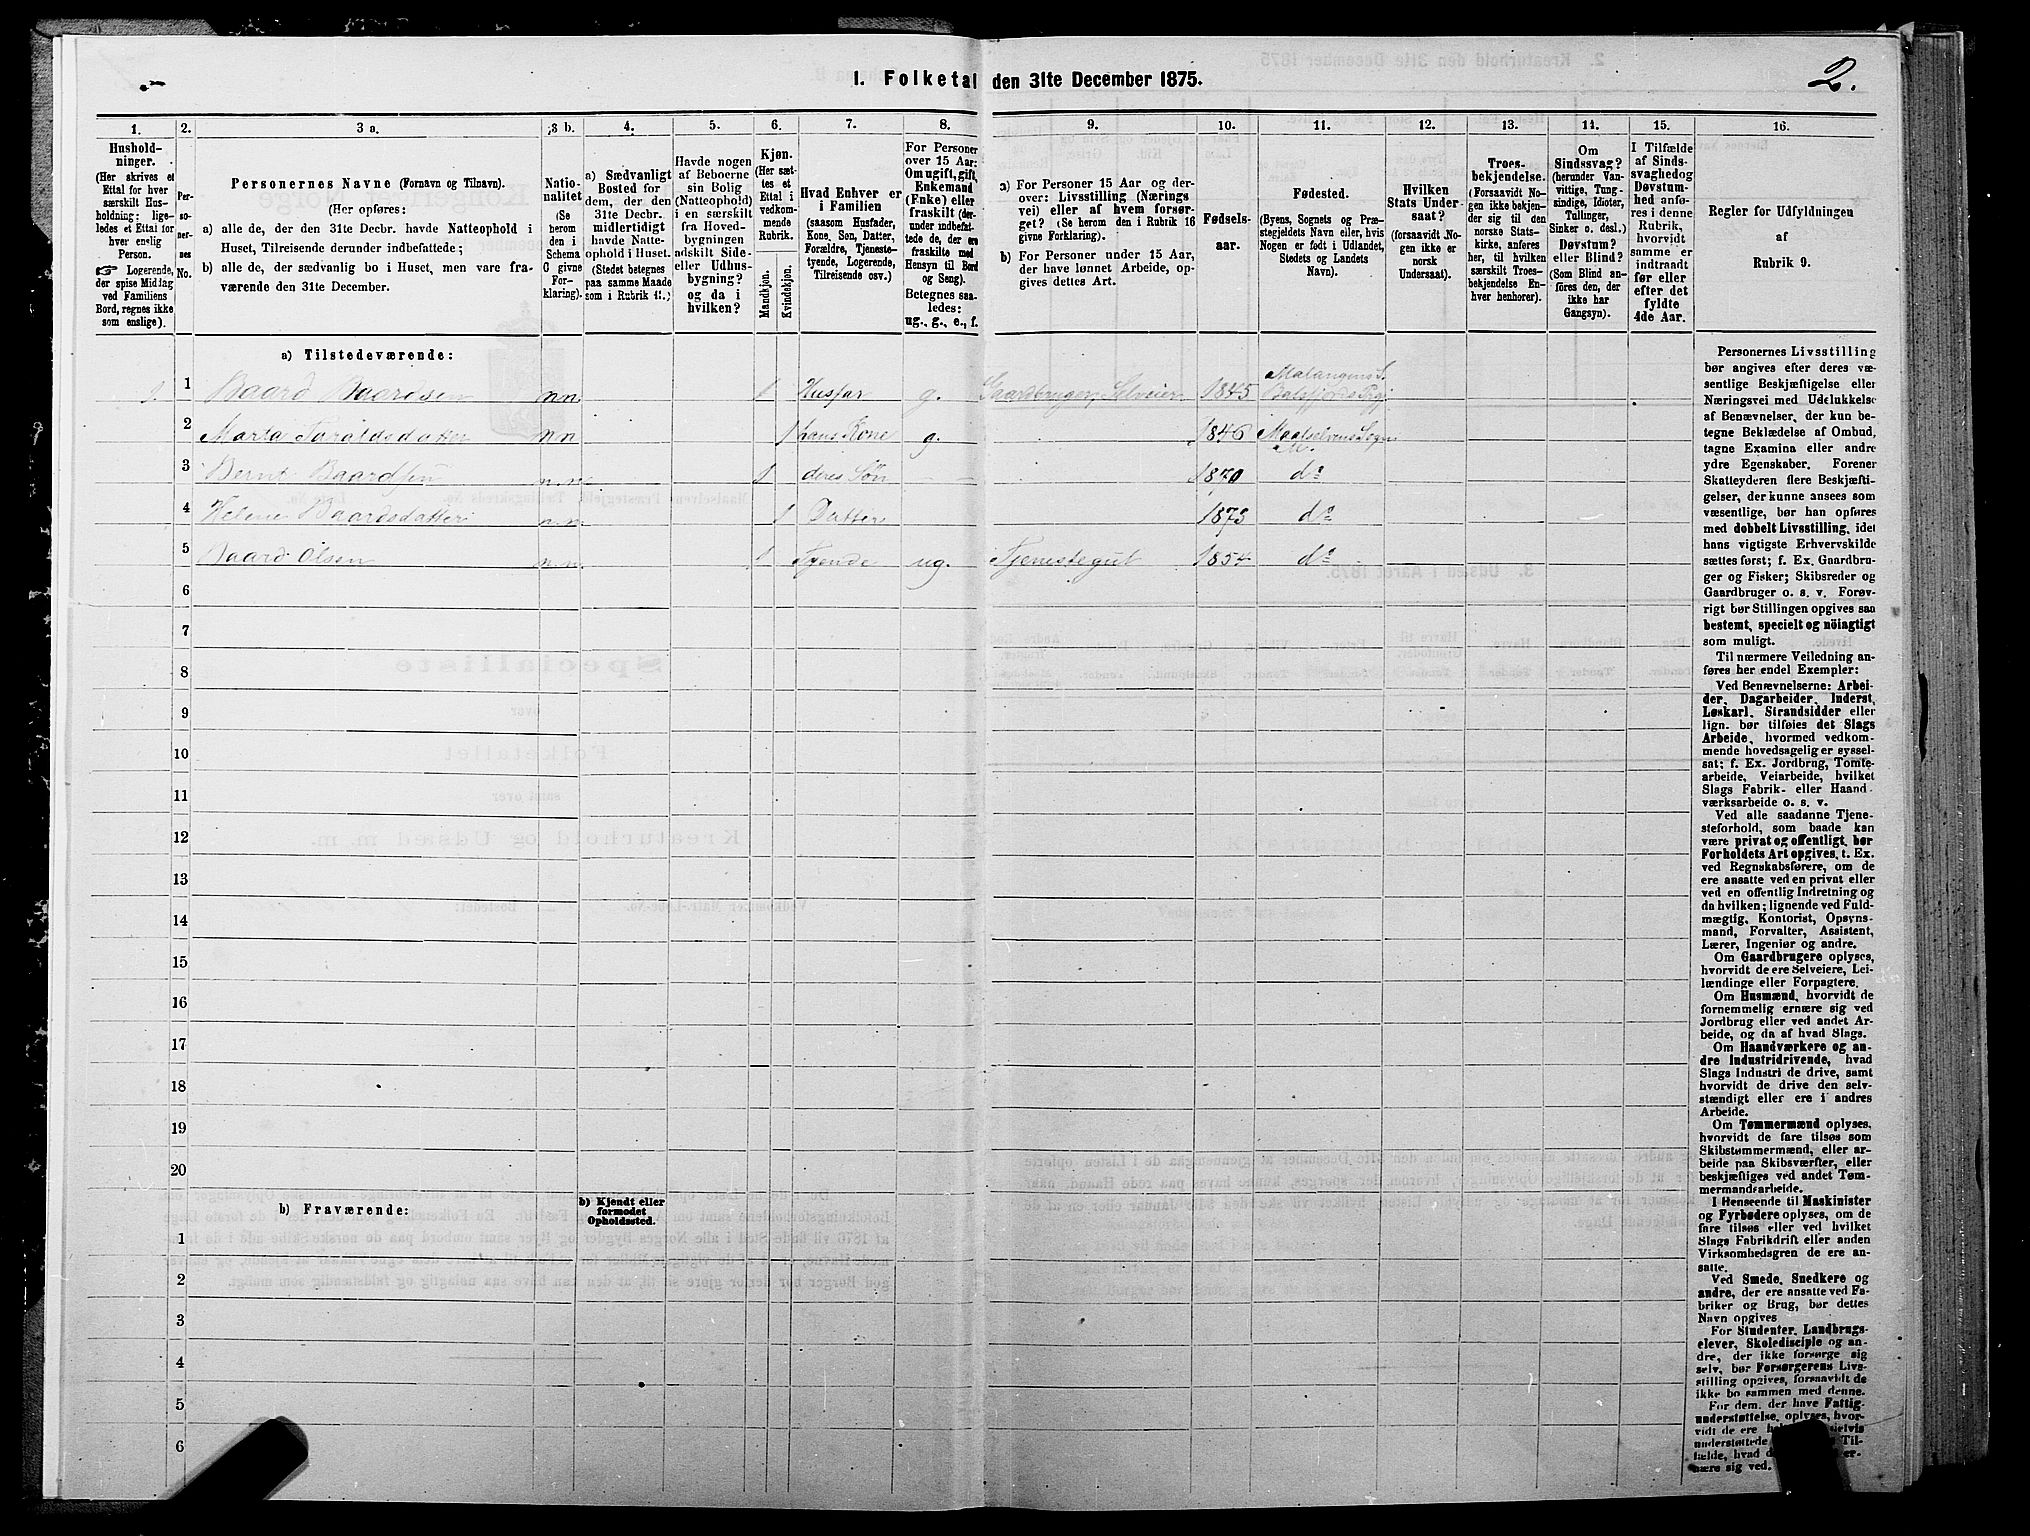 1. Folketal den 31te December 1875.
2.
1.
Hushold-
ninger.
(Her skrives et
Ettal for hver
særskilt Hus-
holdning; lige-
ledes et Ettal for
hver enslig
Person.
☞ Logerende,
der spise Midlag
ved Familiens
Bord, regnes ikke
som enslige).
2.
Per-
so-
ner-
nes
No.
3 a.
Personernes Navne (Fornavn og Tilnavn).
(Her opføres:
a) alle de, der den 31te Decbr. havde Natteophold i
Huset, Tilreisende derunder indbefattede;
b) alle de, der sædvanlig bo i Huset, men vare fra-
værende den 31te December.
3 b.
Natio-
nalitet
(Se
herom
den i
Schema
C givne
For-
klaring).
4.
a) Sædvanligt
Bosted for
dem, der den
31te Decbr.
midlertidigt
havde Natte-
ophold i Huset.
(Stedet betegnes
paa samme Maade
som i Rubrik 11.)
5.
Havde nogen
af Beboerne
sin Bolig
(Natteophold)
i en særskilt
fra Hoved-
bygningen
adskilt Side-
eller Udhus-
bygning?
og da i
hvilken?
6.
Kjøn.
(Her sæt-
tes et
Ettal i
vedkom-
mende
Rubrik.
Mandkjøn.
Kvindekjøn.
7.
Hvad Enhver er
i Familien
(saasom Husfader,
Kone, Søn, Datter,
Forældre, Tjeneste-
tyende, Logerende,
Tilreisende osv.)
8.
For Personer
over 15 Aar:
Om ugift, gift,
Enkemand
(Enke) eller
fraskilt (der-
under indbefat-
tede de, der ere
fraskilte med
Hensyn til Bord
og Seng).
Betegnes saa-
ledes:
ug., g., e., f.
9.
a) For Personer 15 Aar og der-
over: Livsstilling (Nærings
vei) eller af hvem forsør-
get? (Se herom den i Rubrik 16
givne Forklaring).
b) For Personer under 15 Aar,
der have lønnet Arbeide, op-
gives dettes Art.
10.
Fødsels-
aar.
11.
Fødested.
(Byens, Sognets og Præ-
stegjeldets Navn eller, hvis
Nogen er født i Udlandet,
Stedets og Landets
Navn).
12.
Hvilken
Stats Under-
saat?
(forsaavidt No-
gen ikke er
norsk
Undersaat).
13.
Troes-
bekjendelse.
(Forsaavidt No-
gen ikke bekjen-
der sig til den
norske Stats-
kirke, anføres
her, til hvilken
særskilt Troes-
bekjendelse En-
hver henhorer).
14.
Om
Sindssvag?
(herunder Van-
vittige, Tung-
sindige, Idioter,
Tullinger,
Sinker o. desl.)
Døvstum?
eller Blind?
(Som Blind an-
føres den, der
ikke har
Gangsyn).
15.
I Tilfælde
af Sinds-
svaghed og
Døvstum-
hed anfø-
res i denne
Rubrik,
hvorvidt
samme er
indtraadt
før eller
efter det
fyldte
4de Aar.
16.
Regler for Udfyldningen
af
Rubrik 9.
a) Tilstedeværende:
1 1 Baard Baardsen n n 1 Husfar g. Gaardbruger, Selveier 1845 Malangens S. Balsfjords Prgj
2 Marta Taraldsdatter n n 1 hans Kone g. 1846 Maalselvens Sogn
3 Bernt Baardsen n n 1 deres Søn 1870 do
4 Helene Baardsdatter n n 1 Datter 1873 do
5 Baard Olsen n n 1 Tyende ug. Tjenestegut 1854 do
6
7
8
9
10
11
12
13
14
15
16
17
18
19
20
b) Fraværende:
b) Kjendt eller
formodet
Opholdssted.
1
2
3
4
5
6
Personernes Livsstilling
bør angives efter deres væ-
sentlige Beskjæftigelse eller
Næringsvei med Udelukkelse
af Benævnelser, der kun be-
tegne Beklædelse af Ombud,
tagne Examina eller andre
ydre Egenskaber. Forener
Skatteyderen flere Beskjæfti-
gelser, der kunne ansees som
væsentlige, bør han opføres
med dobbelt Livsstilling, idet
hans vigtigste Erhvervskilde
sættes først; f. Ex. Gaardbru-
ger og Fisker; Skibsreder og
Gaardbruger o. s. v. Forøv-
rigt bør Stillingen opgives saa
bestemt, specielt og nöiagtigt
som muligt.
Til nærmere Veiledning an-
føres her endel Exempler:
Ved Benævnelserne: Arbei-
der, Dagarbeider, Inderst,
Løskarl, Strandsidder eller
lign. bør tilføies det Slags
Arbeide, hvormed vedkom-
mende hovedsagelig er syssel-
sat; f. Ex. Jordbrug, Tomte-
arbeide, Veiarbeide, hvilket
Slags Fabrik- eller Haand-
værksarbeide o. s. v.
Ved alle saadanne Tjene-
steforhold, som baade kan
være privat og offentligt, bør
Forholdets Art opgives, t. Ex.
ved Regnskabsførere, om de
ere ansatte ved en privat eller
ved en offentlig Indretning og
da hvilken; lignende ved Fuld-
mægtig, Kontorist, Opsyns-
mand, Forvalter, Assistent,
Lærer, Ingeniør og andre.
Om Gaardbrugere oplyses,
hvorvidt de ere Selveiere, Lei-
lændinge eller Forpagtere.
Om Husmænd, hvorvidt de
fornemmelig ernære sig ved
Jordbrug eller ved andet Ar-
beide, og da af hvad Slags.
Om Haandværkere og an-
dre Industridrivende, hvad
Slags Industri de drive, samt
hvorvidt de drive den selv-
stændigt eller ere i andres
Arbeide.
Om Tømmermænd oplyses,
hvorvidt de fare tilsøs som
Skibstømmermænd, eller ar-
beide paa Skibsværfter, eller
beskjæftiges ved andet Tøm-
mermandsarbeide.
I Henseende til Maskinister
og Fyrbødere oplyses, om de
fare tilsøs eller ved hvilket
Slags Fabrikdrift eller anden
Virksomhedsgren de ere an-
satte.
Ved Smede, Snedkere og
andre, der ere ansatte ved Fa-
briker og Brug, bør dettes
Navn opgives
For Studenter, Landbrugs-
elever, Skoledisciple og an-
dre, der ikke forsørge sig
selv, bør Forsørgerens Livs-
stilling opgives, forsaavidt de
ikke bo sammen med denne.
For dem, der have Fattig-
understøttelse, oplyses, hvor-
vidt de ere
understøttede Til-
fælde, hvad er-
nære sig ved.